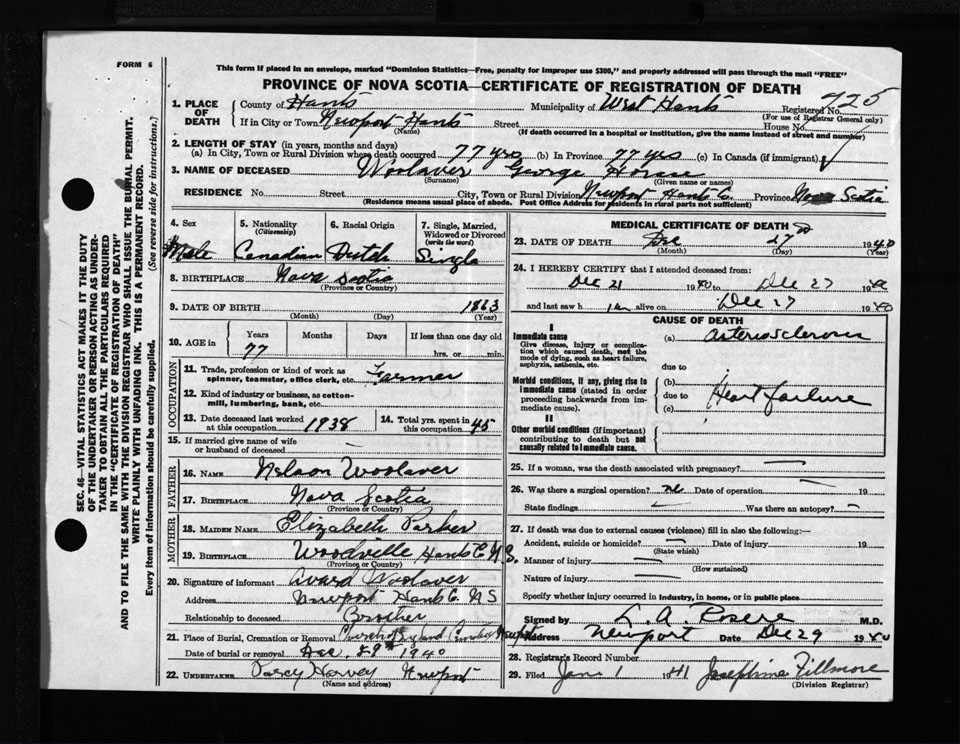 FORM 6
This form if placed in an envelope, marked "Dominion Statistics—Free, penalty for improper use $300," and properly addressed will pass through the mail "FREE"
PROVINCE OF NOVA SCOTIA—CERTIFICATE OF REGISTRATION OF DEATH
1. PLACE OF DEATH County of Hants Municipality of West Hants Registered No. 425
(For use of Registrar General only)
If in City or Town Newport Hants Street House No.
(Name) (If death occurred in a hospital or institution, give the name instead of street and number)
2. LENGTH OF STAY (in years, months and days)
(a) In City, Town or Rural Division where death occurred 77 yrs (b) In Province 77 yrs (c) In Canada (if immigrant)
3. NAME OF DECEASED Woolaver George Horace
(Surname) (Given name or names)
RESIDENCE No. Street City, Town or Rural Division Newport Hants Co. Province Nova Scotia
(Residence means usual place of abode. Post Office Address for residents in rural parts not sufficient)
4. Sex Male
5. Nationality (Citizenship) Canadian
6. Racial Origin Dutch
7. Single, Married, Widowed or Divorced (write the word) Single
8. BIRTHPLACE Nova Scotia
(Province or Country)
9. DATE OF BIRTH 1863
(Month) (Day) (Year)
10. AGE in Years Months Days If less than one day old
77 hrs. or min.
OCCUPATION
11. Trade, profession or kind of work as spinner, teamster, office clerk, etc. Farmer
12. Kind of industry or business, as cotton-mill, lumbering, bank, etc.
13. Date deceased last worked at this occupation 1938
14. Total yrs. spent in this occupation 45
15. If married give name of wife or husband of deceased —
FATHER
16. NAME Nelson Woolaver
17. BIRTHPLACE Nova Scotia
(Province or Country)
MOTHER
18. MAIDEN NAME Elizabeth Parker
19. BIRTHPLACE Woodville Hants Co N.S.
(Province or Country)
20. Signature of informant Avard Woolaver
Address Newport Hants Co. N S
Relationship to deceased Brother
21. Place of Burial, Cremation or Removal Church of England Newport
Date of burial or removal Dec. 29th 1940
22. UNDERTAKER Percy Harvey Newport
(Name and address)
MEDICAL CERTIFICATE OF DEATH
23. DATE OF DEATH Dec 27 1940
(Month) (Day) (Year)
24. I HEREBY CERTIFY that I attended deceased from:
Dec 21 1940 to Dec 27 1940
and last saw h im alive on Dec 27 1940
CAUSE OF DEATH
I
Immediate cause
Give disease, injury or complication which caused death, not the mode of dying, such as heart failure, asphyxia, asthenia, etc.
(a) arteriosclerosis
due to
Morbid conditions, if any, giving rise to immediate cause (stated in order proceeding backwards from immediate cause).
(b) Heart failure
due to
(c)
II
Other morbid conditions (if important) contributing to death but not causally related to immediate cause.
25. If a woman, was the death associated with pregnancy? —
26. Was there a surgical operation? no Date of operation — 19
State findings — Was there an autopsy? —
27. If death was due to external causes (violence) fill in also the following:—
Accident, suicide or homicide? — Date of injury 19
(State which)
Manner of injury —
(How sustained)
Nature of injury —
Specify whether injury occurred in industry, in home, or in public place
Signed by M.D.
Address Newport Date Dec 29 1940
28. Registrar's Record Number
29. Filed Jan 1 1941 Josephine Fillmore
(Division Registrar)
SEC. 46—VITAL STATISTICS ACT MAKES IT THE DUTY
OF THE UNDERTAKER OR PERSON ACTING AS UNDER-
TAKER TO OBTAIN ALL THE PARTICULARS REQUIRED
IN THE "CERTIFICATE OF REGISTRATION OF DEATH"
AND TO FILE THE SAME WITH THE DIVISION REGISTRAR WHO SHALL ISSUE THE BURIAL PERMIT.
WRITE PLAINLY WITH UNFADING INK. THIS IS A PERMANENT RECORD.
Every item of information should be carefully supplied. (See reverse side for instructions.)